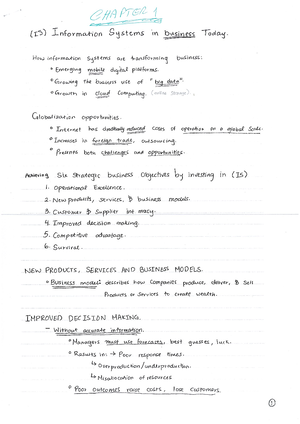 CHAPTER 1
(IS) Information Systems in business Today.
How information systems are transforming business:
* Emerging mobile digital platforms.
* Growing the business use of "big data".
* Growth in cloud computing.
Globalization opportunities.
* Internet has drastically reduced costs of operation on a global scale.
* Increases in foreign trade, outsourcing.
* Presents both challenges and opportunities.
Achieving Six Strategic business Objectives by investing in (IS)
1. Operational Excellence.
2. New products, services, & business models.
3. Customer & Supplier intimacy.
4. Improved decision making.
5. Competitive advantage.
6. Survival.
NEW PRODUCTS, SERVICES AND BUSINESS MODELS.
* Business model: describes how companies produce, deliver, & Sell
Products or Services to create wealth.
IMPROVED DECISION MAKING.
- Without accurate information.
* Managers must use forecasts, best guesses, luck.
* Results in: → Poor response times.
↳ Overproduction/underproduction.
↳ Misallocation of resources
* Poor outcomes raise costs, lose customers.
1